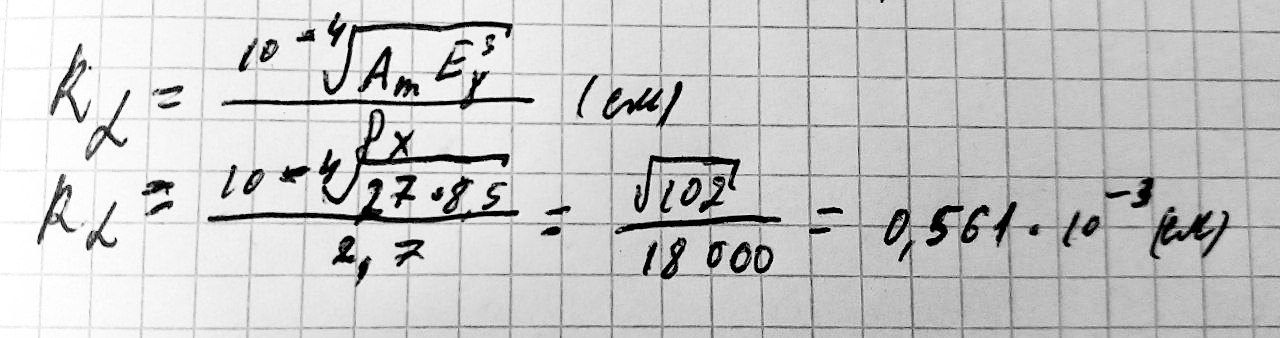 R_α = 10^-4 √(A_m E_γ^3) / ρ_x (см)
R_α = 10^-4 √(27·8,5) / 2,7 = √102 / 18 000 = 0,561 · 10^-3 (см)